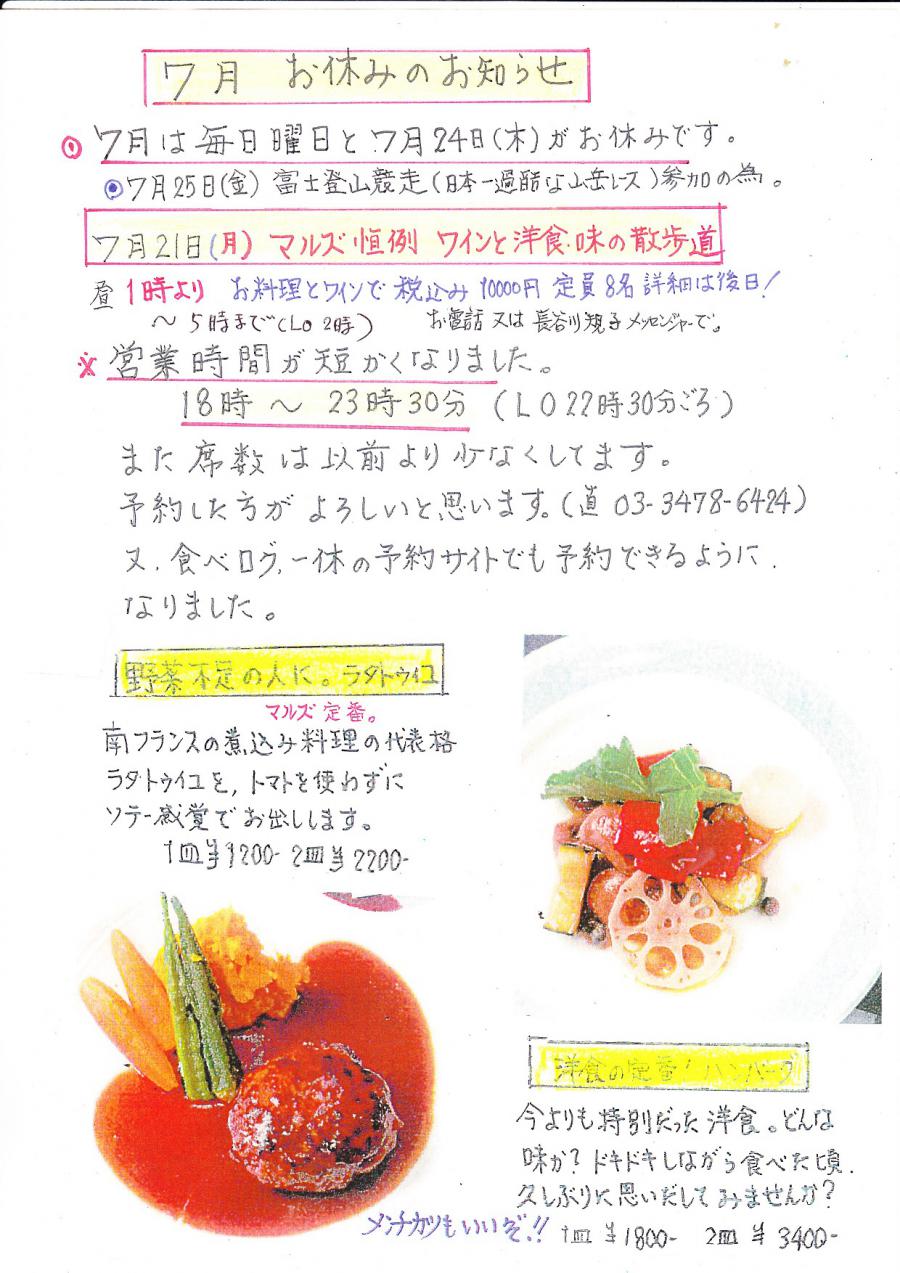 7月 お休みのお知らせ
⊙ 7月は毎日曜日と7月24日(木)がお休みです。
◉7月25日(金) 富士登山競走(日本一過酷な山岳レス)参加の為。
7月21日(月) マルズ恒例 ワインと洋食・味の散歩道
昼 1時より お料理とワインで 税込み 10000円 定員8名 詳細は後日!
〜5時まで(LO 2時) お電話 又は 長谷川 メッセンジャーで。
※ 営業時間が短かくなりました。
18時 〜 23時30分 (LO22時30分ごろ)
また席数は以前より少なくしてます。
予約した方が よろしいと思います。(直 03-3478-6424)
又、食べログ、一休の予約サイトでも予約できるように
なりました。
野菜不足の人に。ラタトゥイユ
マルズ定番。
南フランスの煮込み料理の代表格
ラタトゥイユを、トマトを使わずに
ソテー感覚でお出しします。
1皿¥1200- 2皿¥2200-
洋食の定番!ハンバーグ
今よりも特別だった洋食。どんな
味か?ドキドキしながら食べた頃、
久しぶりに思いだしてみませんか?
メンチカツもいいぞ!!
1皿¥1800- 2皿¥3400-